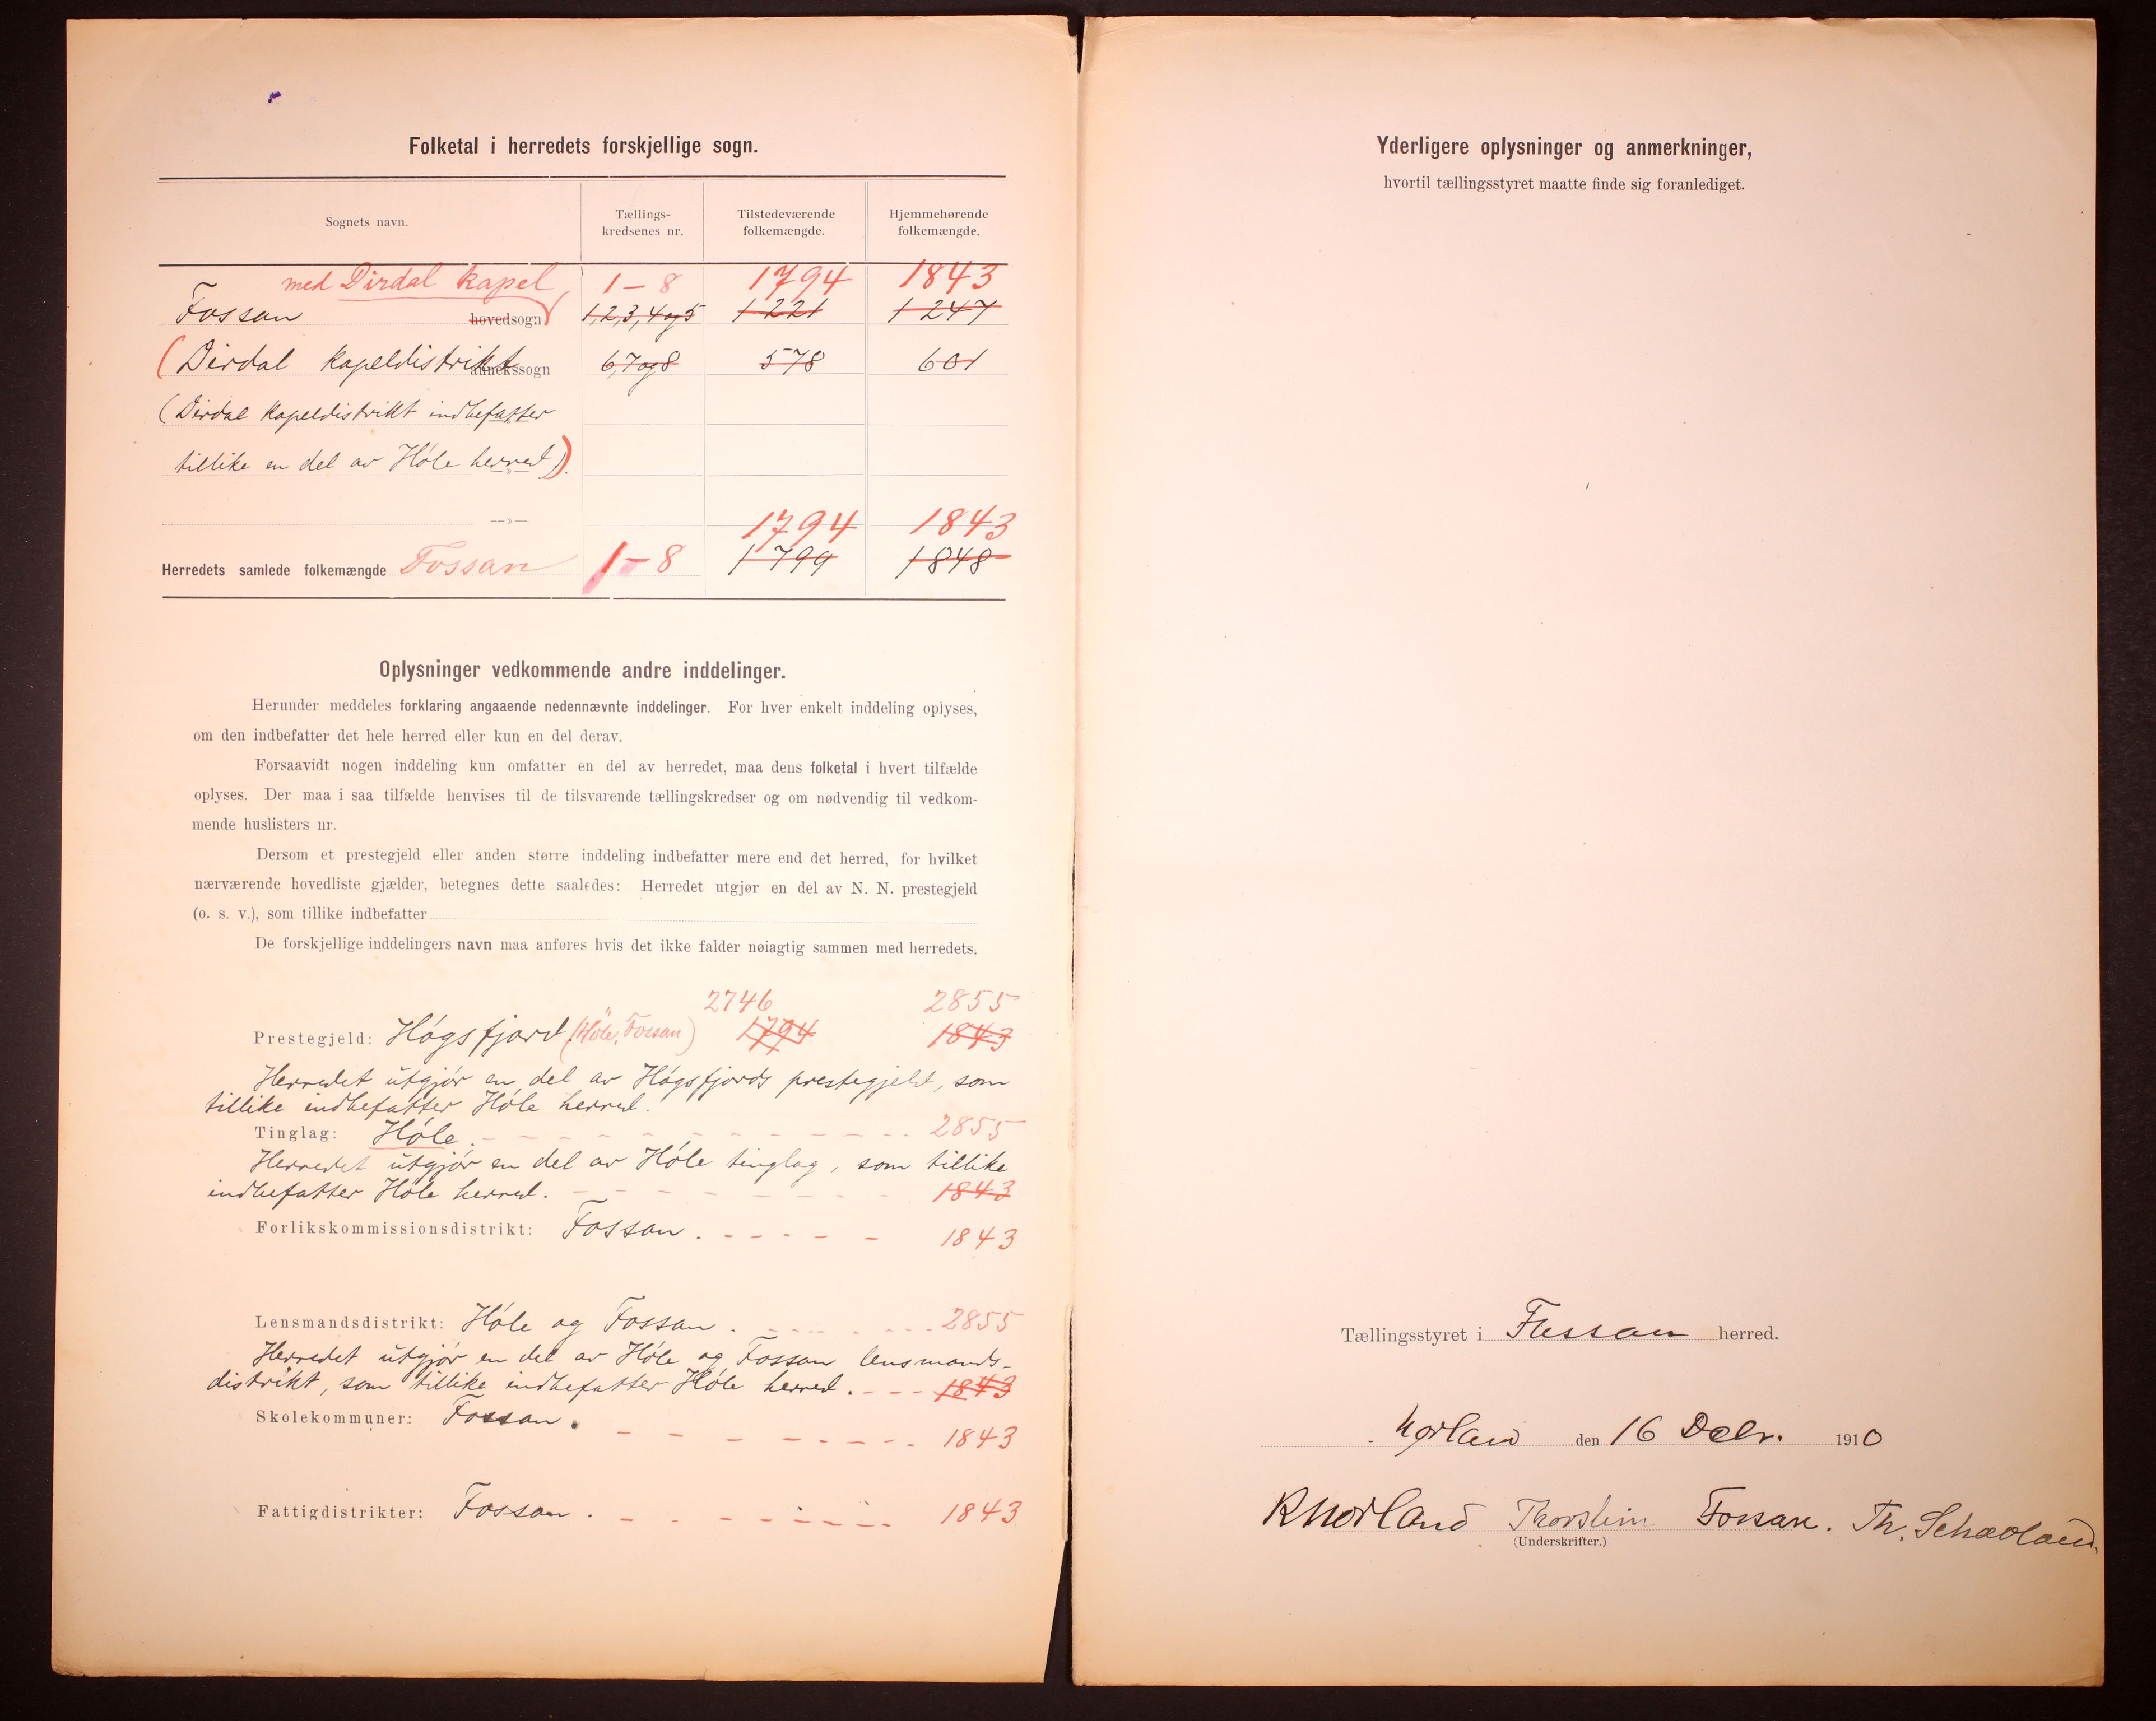 Folketal i herredets forskjellige sogn.
Sognets navn.
Tællings-
kredsenes nr.
Tilstedeværende
folkemængde.
Hjemmehørende
folkemængde.
med Dirdal kapel 1-8 1794 1843
Fossan hovedsogn 1,2,3,4og5 1221 1247
(Dirdal Kapeldistrikt annekssogn 6,7og8 578 601
(Dirdal Kapeldistrikt indbefatter
tillike en del av Høle herred)).
—»—
1794 1843
Herredets samlede folkemængde Fossan 1-8 1799 1848
Oplysninger vedkommende andre inddelinger.
Herunder meddeles forklaring angaaende nedennævnte inddelinger. For hver enkelt inddeling oplyses,
om den indbefatter det hele herred eller kun en del derav.
Forsaavidt nogen inddeling kun omfatter en del av herredet, maa dens folketal i hvert tilfælde
oplyses. Der maa i saa tilfælde henvises til de tilsvarende tællingskredser og om nødvendig til vedkom-
mende huslisters nr.
Dersom et prestegjeld eller anden større inddeling indbefatter mere end det herred, for hvilket
nærværende hovedliste gjælder, betegnes dette saaledes: Herredet utgjør en del av N. N. prestegjeld
(o. s. v.), som tillike indbefatter
De forskjellige inddelingers navn maa anføres hvis det ikke falder nøiagtig sammen med herredets.
2746 2855
Prestegjeld: Høgsfjord (Høle, Fossan) 1794 1843
Herredet utgjør en del av Høgsfjords prestegjeld, som
tillike indbefatter Høle herred.
Tinglag: Høle. 2855
Herredet utgjør en del av Høle tinglag, som tillike
indbefatter Høle herred. 1843
Forlikskommissionsdistrikt: Fossan. 1843
Lensmandsdistrikt: Høle og Fossan. 2855
Herredet utgjør en del av Høle og Fossan lensmands-
distrikt, som tillike indbefatter Høle herred. 1843
Skolekommuner: Fossan.
1843
Fattigdistrikter: Fossan. 1843
Yderligere oplysninger og anmerkninger,
hvortil tællingsstyret maatte finde sig foranlediget.
Tællingsstyret i Fossan herred.
Norland den 16 Decbr. 1910
R Norland Thorstein Fossan. Th.
(Underskrifter.)